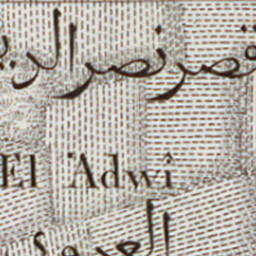 قصر نصر الدين
El 'Adwî
العدوى